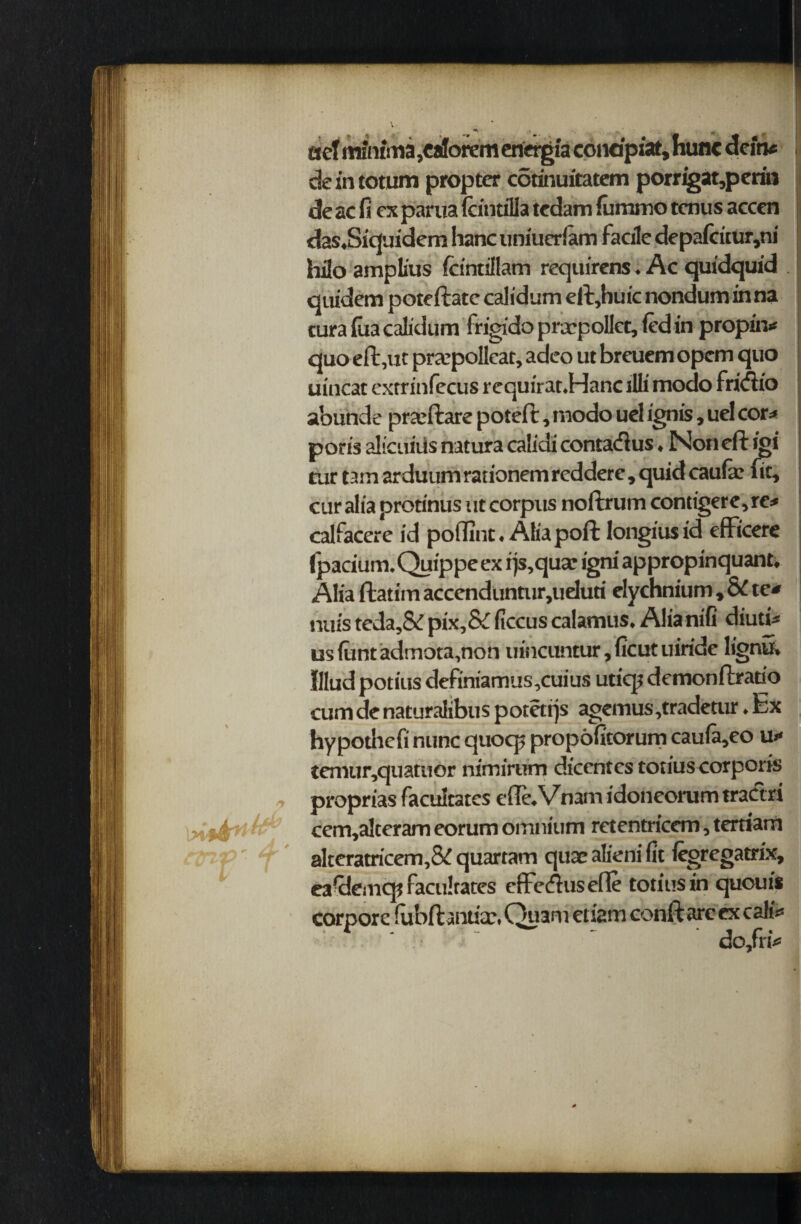 uel minima,caloremenergia concipiat, hunc dein⸗
de in totum propter cōtinuitatem porrigat,perin
de ac ſi ex parua ſcintilla tedam ſummo tenus accen
das.Siquidem hanc uniuerſam facile depaſcitur,ni
hilo amplius ſcintillam requirens. Ac quidquid
quidem poteſtate calidum eſt,huic nondum in na
tura ſua calidum frigido præpollet, ſed in propin⸗
quo eſt,ut præpolleat, adeo ut breuem opem quo
uincat extrinſecus requirat.Hanc illi modo frictio
abunde præſtare poteſt, modo uel ignis, uel cor⸗
poris alicuius natura calidi contactus. Non eſt igi
tur tam arduum rationem reddere, quid cauſæ ſit,
cur alia protinus ut corpus noſtrum contigere, re⸗
calfacere id poſſint. Alia poſt longius id efficere
ſpacium. Quippe ex ijs,quæ igni appropinquant.
Alia ſtatim accenduntur,ueluti elychnium, & te⸗
nuis teda,& pix,& ſiccus calamus. Alia niſi diuti⸗
us ſunt admota,non uincuntur, ſicut uiride lignū.
Illud potius definiamus,cuius utiq; demonſtratio
cum de naturalibus potētijs agemus,tradetur. Ex
hypotheſi nunc quoq; propoſitorum cauſa,eo u⸗
temur,quatuor nimirum dicentes totius corporis
proprias facultates eſſe.Vnam idoneorum tractri
cem,alteram eorum omnium retentricem, tertiam
alteratricem,& quartam quæ alieni ſit ſegregatrix,
eaſdemq; facultates effectus eſſe totius in quouis
corpore ſubſtantiæ. Quam etiam conſtare ex cali⸗
do,fri⸗